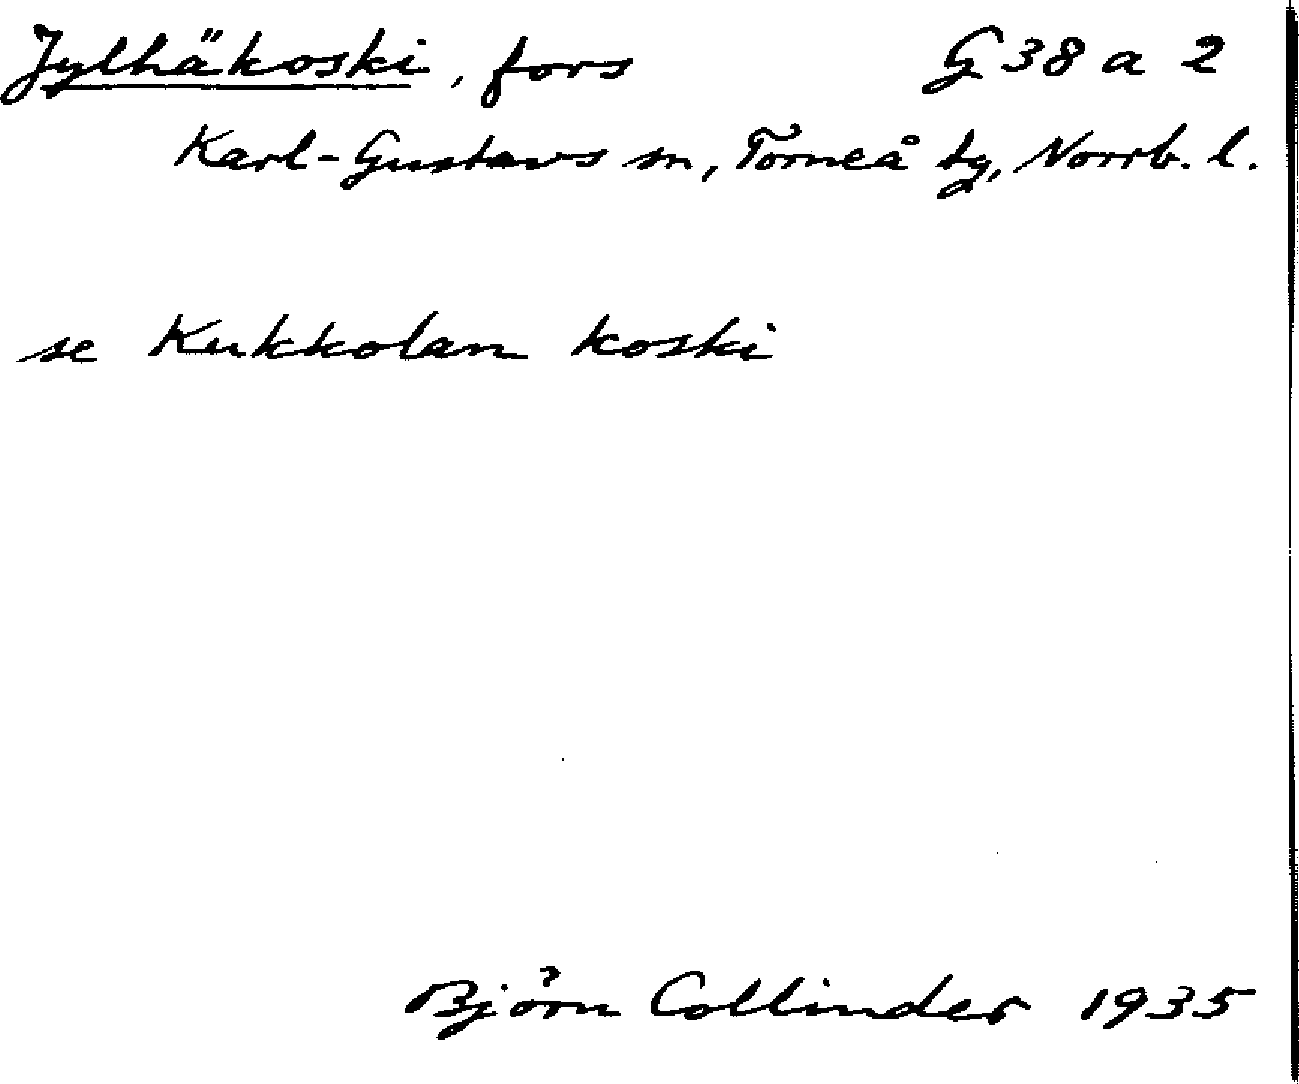 Jylhäkoski, fors G 38 a 2
Karl-Gustavs sn, Torneå tg, Norrb. l.
se Kukkolan koski
Björn Collinder 1935